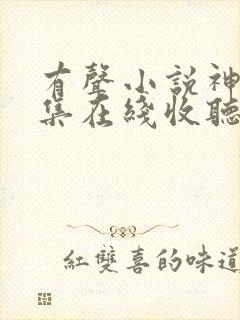 有聲小說神
集在綫收聽
紅雙喜的味道